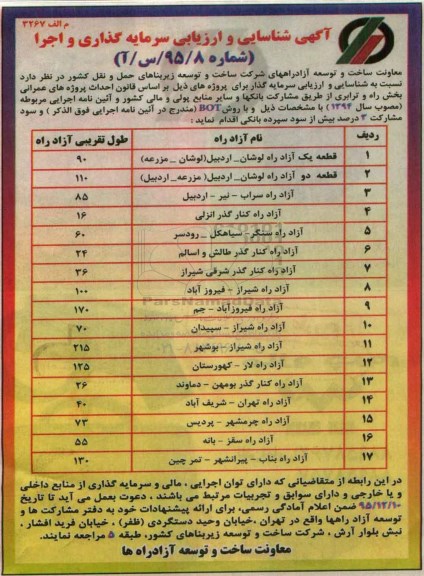 م الف ۳۲۶۷
آگهی شناسایی و ارزیابی سرمایه گذاری و اجرا
(شماره ۹۵/۸/س/آ)
معاونت ساخت و توسعه آزادراههای شرکت ساخت و توسعه زیربناهای حمل و نقل کشور در نظر دارد
نسبت به شناسایی و ارزیابی سرمایه گذار برای پروژه های ذیل بر اساس قانون احداث پروژه های عمرانی
بخش راه و ترابری از طریق مشارکت بانکها و سایر منابع پولی و مالی کشور و آئین نامه اجرایی مربوطه
(مصوب سال ۱۳۹۴) با مشخصات ذیل و با روش BOT (مندرج در آئین نامه اجرایی فوق الذکر) و سود
مشارکت ۳ درصد بیش از سود سپرده بانکی اقدام نماید:
ردیف نام آزاد راه طول تقریبی آزاد راه
۱ قطعه یک آزاد راه لوشان_ اردبیل(لوشان _ مزرعه) ۹۰
۲ قطعه دو آزاد راه لوشان_ اردبیل( مزرعه_ اردبیل) ۱۱۰
۳ آزاد راه سراب - نیر - اردبیل ۸۵
۴ آزاد راه کنار گذر انزلی ۱۶
۵ آزاد راه سنگر- سیاهکل _رودسر ۶۰
۶ آزاد راه کنار گذر طالش و اسالم ۲۴
۷ آزاد راه کنار گذر شرقی شیراز ۳۶
۸ آزاد راه شیراز - فیروز آباد ۱۰۰
۹ آزاد راه فیروزآباد - جم ۱۷۰
۱۰ آزاد راه شیراز - سپیدان ۷۰
۱۱ آزاد راه شیراز - بوشهر ۲۱۵
۱۲ آزاد راه لار - کهورستان ۱۲۵
۱۳ آزاد راه کنار گذر بومهن - دماوند ۲۶
۱۴ آزاد راه تهران - شریف آباد ۴۰
۱۵ آزاد راه چرمشهر - پردیس ۷۳
۱۶ آزاد راه سقز - بانه ۵۵
۱۷ آزاد راه بناب - پیرانشهر - تمر چین ۱۳۰
در این رابطه از متقاضیانی که دارای توان اجرایی ، مالی و سرمایه گذاری از منابع داخلی
و یا خارجی و دارای سوابق و تجربیات مرتبط می باشند ، دعوت بعمل می آید تا تاریخ
۹۵/۱۲/۱۰ ضمن اعلام آمادگی رسمی، برای ارائه پیشنهادات خود به دفتر مشارکت ها و
توسعه آزاد راهها واقع در تهران ،خیابان وحید دستگردی (ظفر) ، خیابان فرید افشار ،
نبش بلوار آرش ، شرکت ساخت و توسعه زیربناهای کشور، طبقه ۵ مراجعه نمایند.
معاونت ساخت و توسعه آزادراه ها